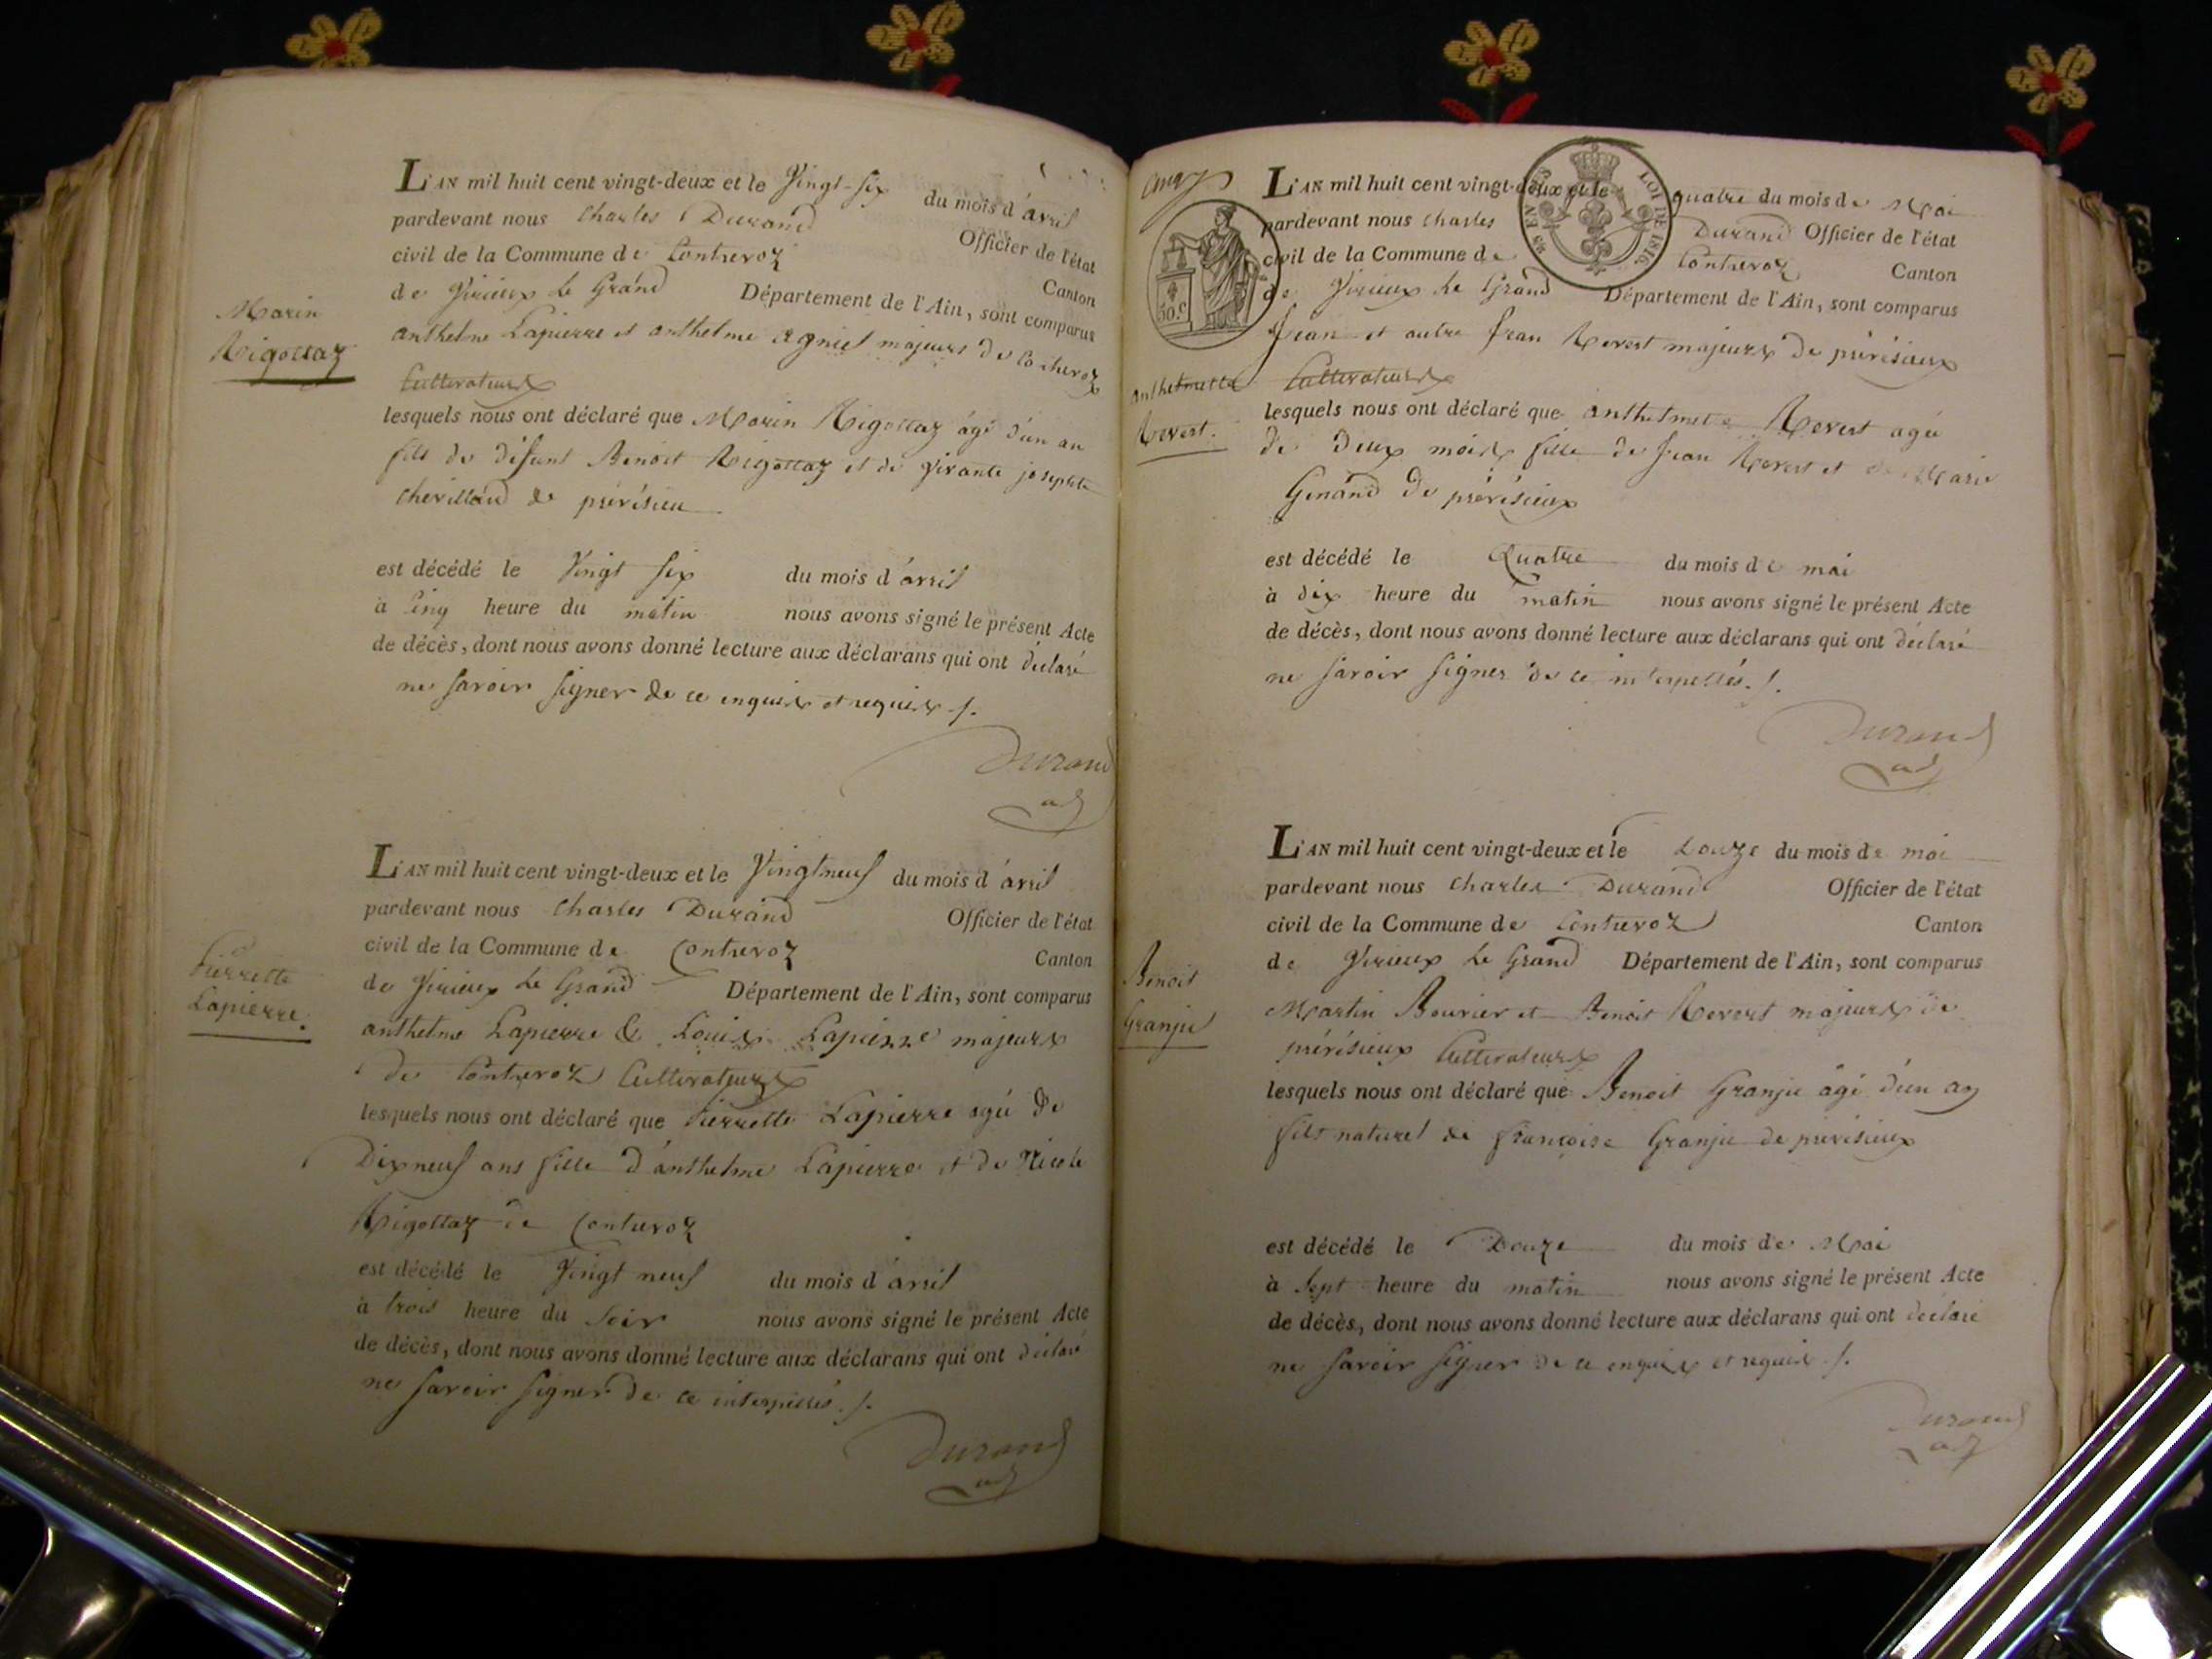 L'AN mil huit cent vingt-deux et le Vingt-six du mois d'avril
pardevant nous Charles Durand Officier de l'état
civil de la Commune de Contrevoz Canton
de Virieux le Grand Département de l'Ain, sont comparus
Marin
Rigottaz
anthelme Lapierre et anthelme agniel majeurs de Contrevoz
Cultivateurs
lesquels nous ont déclaré que Marin Rigottaz âgé d'un an
fils de défunt Benoit Rigottaz et de josephte
chevilland de prévésieu
est décédé le Vingt six du mois d'avril
à Cinq heure du matin nous avons signé le présent Acte
de décès, dont nous avons donné lecture aux déclarans qui ont déclaré
ne savoir signer de ce enquis et requis ./.
Durand
adj
L'AN mil huit cent vingt-deux et le Vingt neuf du mois d'avril
pardevant nous Charles Durand Officier de l'état
civil de la Commune de Contrevoz Canton
de Virieux le Grand Département de l'Ain, sont comparus
Pierrette
Lapierre.
anthelme Lapierre & Louis Lapierre majeurs
de Contrevoz Cultivateurs
lesquels nous ont déclaré que Pierrette Lapierre agée de
Dix neuf ans fille d'anthelme Lapierre et de Nicole
Rigottaz de Contrevoz
est décédé le Vingt neuf du mois d'avril
à trois heure du Soir nous avons signé le présent Acte
de décès, dont nous avons donné lecture aux déclarans qui ont déclaré
ne savoir signer de ce interpellés ./.
Durand
adj
LOI DE 1816.
50.C
L'AN mil huit cent vingt-deux et le quatre du mois de Mai
pardevant nous Charles Durand Officier de l'état
civil de la Commune de Contrevoz Canton
de Virieux le Grand Département de l'Ain, sont comparus
Jean et autre Jean Revest majeurs de prévésieux
Cultivateurs
anthelmette
Revest.
lesquels nous ont déclaré que anthelmette Revest agée
de Deux mois fille de Jean Revest et de Marie
Genand de prévésieux
est décédé le Quatre du mois de mai
à dix heure du matin nous avons signé le présent Acte
de décès, dont nous avons donné lecture aux déclarans qui ont déclaré
ne savoir signer de ce interpellés ./.
Durand
adj
L'AN mil huit cent vingt-deux et le Douze du mois de mai
pardevant nous Charles Durand Officier de l'état
civil de la Commune de Contrevoz Canton
de Virieux le Grand Département de l'Ain, sont comparus
Benoit
Granju
Martin Bouvier et Benoit Revest majeurs de
prévésieux Cultivateurs
lesquels nous ont déclaré que Benoit Granju âgé d'un an
fils naturel de françoise Granju de prévésieux
est décédé le Douze du mois de Mai
à Sept heure du matin nous avons signé le présent Acte
de décès, dont nous avons donné lecture aux déclarans qui ont déclaré
ne savoir signer de ce enquis et requis ./.
Durand
adj